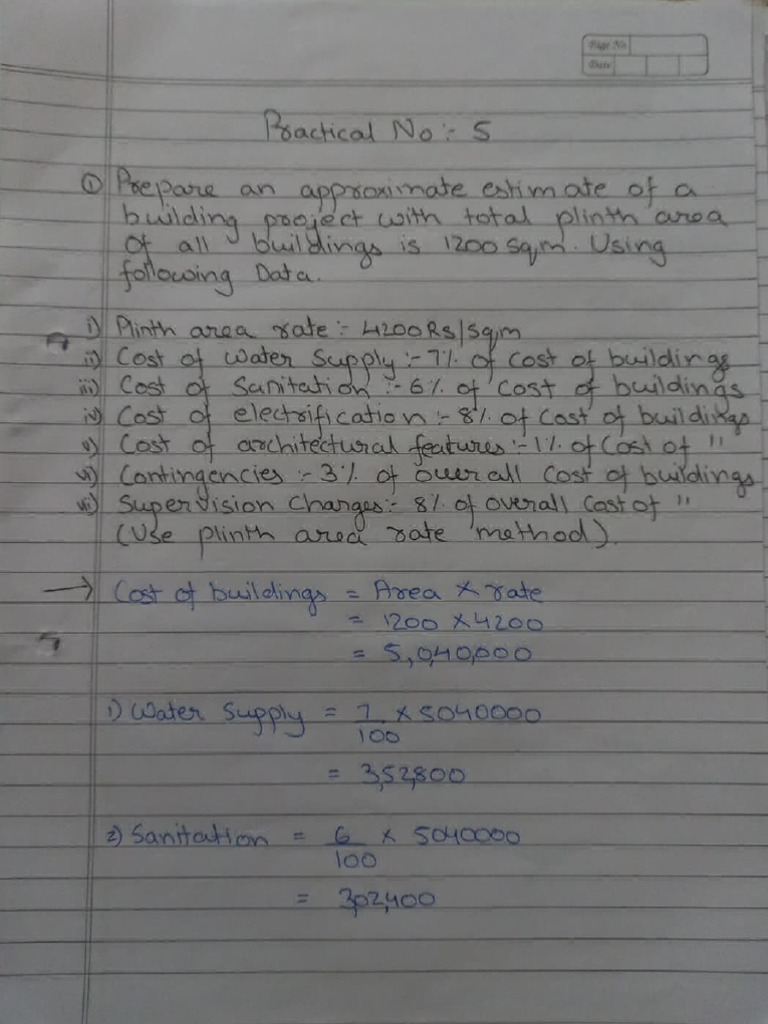 Page No.
Date
Practical No :- 5
① Prepare an approximate estimate of a
building project with total plinth area
of all buildings is 1200 sq.m. Using
following Data.
i) Plinth area rate :- 4200 Rs/sq.m
ii) Cost of Water Supply :- 7% of cost of buildings
iii) Cost of Sanitation :- 6% of cost of buildings
iv) Cost of electrification :- 8% of cost of buildings
v) Cost of architectural features :- 1% of cost of "
vi) Contingencies :- 3% of over all cost of buildings
vii) Supervision Charges :- 8% of overall cost of "
(Use plinth area rate method).
→ Cost of buildings = Area × rate
= 1200 × 4200
= 5,040,000
1) Water Supply = 7/100 × 5040000
= 3,52,800
2) Sanitation = 6/100 × 5040000
= 3,02,400